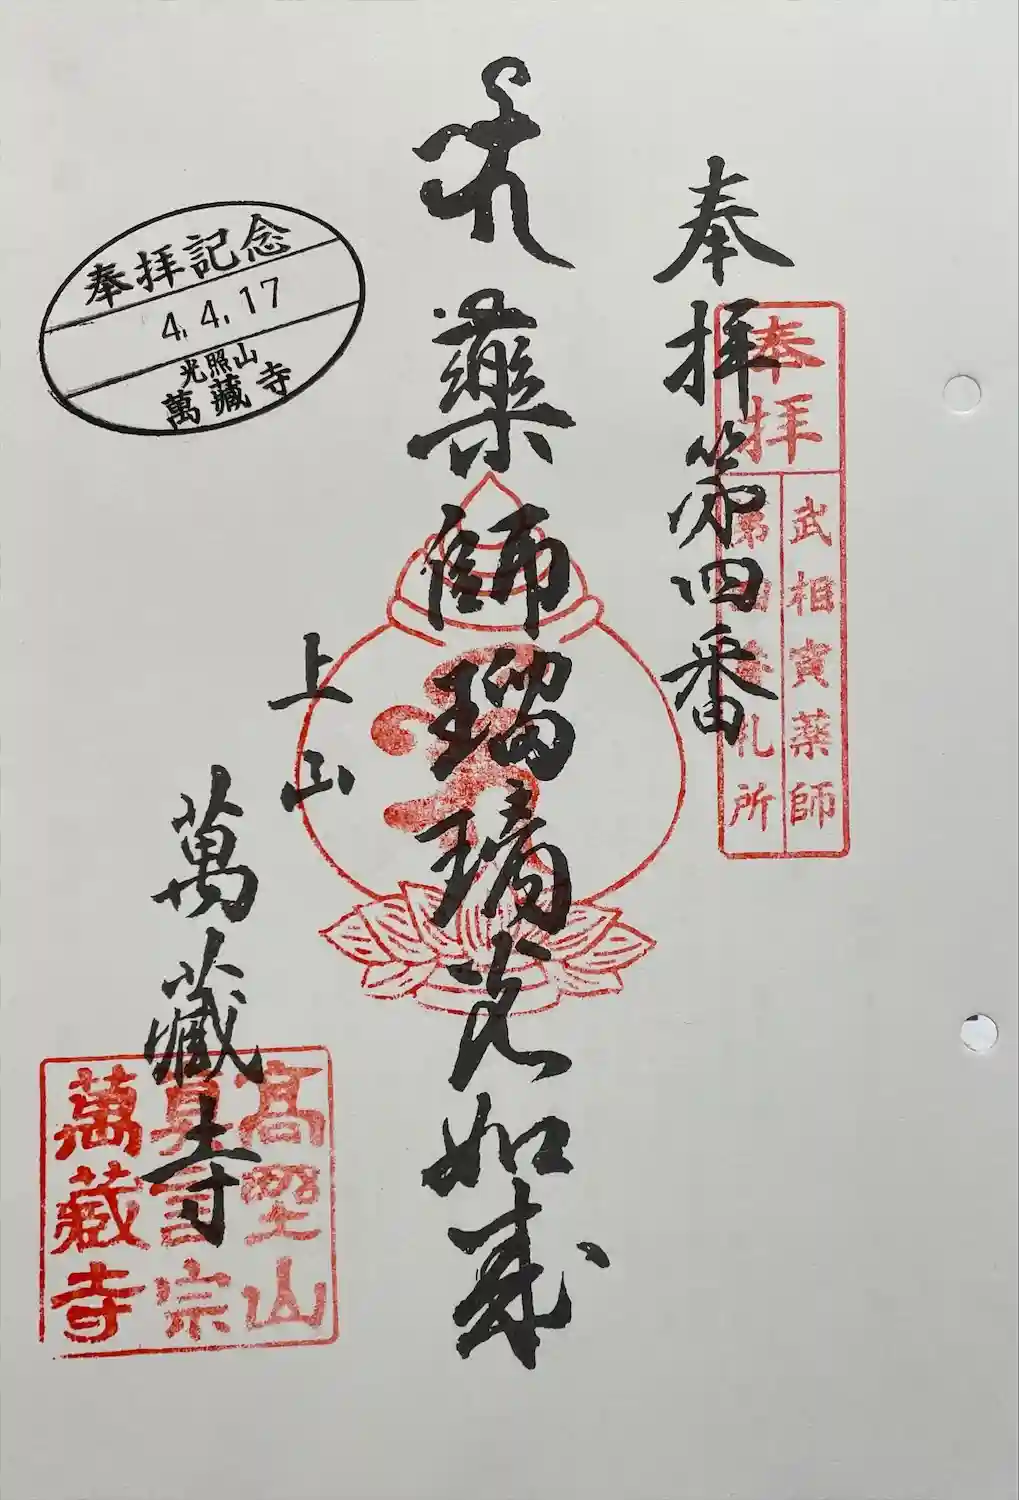 奉拝第四番
奉拝
武相寅薬師
第四番札所
薬師瑠璃光如来
上山
萬藏寺
奉拝記念
4.4.17
光照山
萬藏寺
高野山
真言宗
萬藏寺